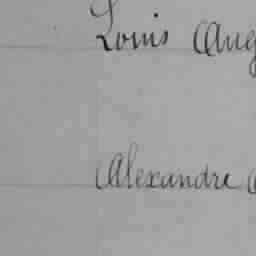 Louis Aug
Alexandre